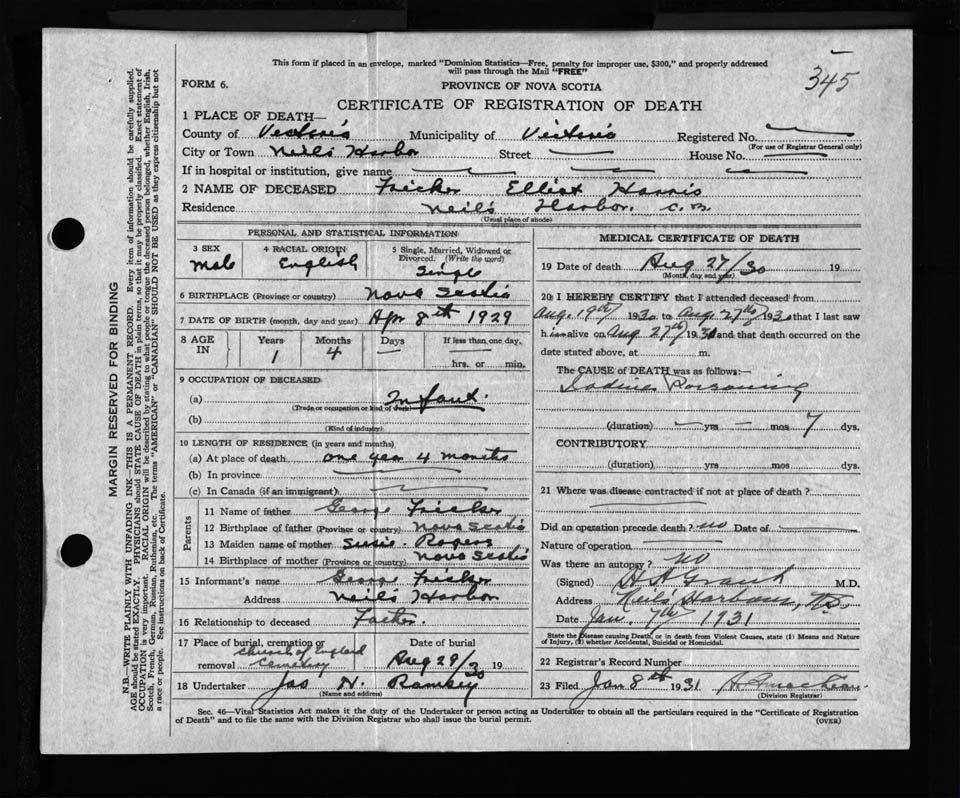 This form if placed in an envelope, marked "Dominion Statistics—Free, penalty for improper use, $300," and properly addressed
will pass through the Mail "FREE"
345
FORM 6.
PROVINCE OF NOVA SCOTIA
CERTIFICATE OF REGISTRATION OF DEATH
1 PLACE OF DEATH—
County of Victoria Municipality of Victoria Registered No.
(For use of Registrar General only)
City or Town Neils Harbor Street House No.
If in hospital or institution, give name
2 NAME OF DECEASED Fricker Elliot Harris
Residence Neil's Harbor. C.B.
(Usual place of abode)
PERSONAL AND STATISTICAL INFORMATION
3 SEX 4 RACIAL ORIGIN 5 Single, Married, Widowed or
Divorced. (Write the word)
Male English Single
6 BIRTHPLACE (Province or country) Nova Scotia
7 DATE OF BIRTH (month, day and year) Apr 8th 1929
8 AGE IN Years Months Days If less than one day,
1 4 — hrs. or min.
9 OCCUPATION OF DECEASED
(a) Infant.
(Trade or occupation or kind of work)
(b)
(Kind of industry)
10 LENGTH OF RESIDENCE (in years and months)
(a) At place of death one year 4 months
(b) In province
(c) In Canada (if an immigrant)
Parents
11 Name of father George Fricker
12 Birthplace of father (Province or country) Nova Scotia
13 Maiden name of mother Susie Rogers
14 Birthplace of mother (Province or country) Nova Scotia
15 Informant's name George Fricker
Address Neils Harbor
16 Relationship to deceased Father.
17 Place of burial, cremation or Date of burial
Church of England
removal Cemetery Aug 29/30 19
18 Undertaker Jas N. Ramsey
(Name and address)
MEDICAL CERTIFICATE OF DEATH
19 Date of death Aug 27/30 19
(Month, day and year)
20 I HEREBY CERTIFY that I attended deceased from
Aug. 19th 1930 to Aug. 27th 1930 that I last saw
h im alive on Aug 27th 1930 and that death occurred on the
date stated above, at m.
The CAUSE of DEATH was as follows:—
Iodine Poisoning
(duration) — yrs — mos 7 dys.
CONTRIBUTORY
(duration) yrs mos dys.
21 Where was disease contracted if not at place of death?
Did an operation precede death? no Date of
Nature of operation
Was there an autopsy? no
(Signed) H A Grant M.D.
Address Neils Harbour, N.S.
Date Jan. 7th 1931
State the Disease causing Death, or in death from Violent Causes, state (1) Means and Nature
of Injury, (2) whether Accidental, Suicidal or Homicidal.
22 Registrar's Record Number
23 Filed Jan 8th 1931
(Division Registrar)
Sec. 46—Vital Statistics Act makes it the duty of the Undertaker or person acting as Undertaker to obtain all the particulars required in the "Certificate of Registration
of Death" and to file the same with the Division Registrar who shall issue the burial permit.
(OVER)
MARGIN RESERVED FOR BINDING
N.B.—WRITE PLAINLY WITH UNFADING INK—THIS IS A PERMANENT RECORD. Every item of information should be carefully supplied.
AGE should be stated EXACTLY. PHYSICIANS should STATE CAUSE OF DEATH in plain terms, so that it may be properly classified. Exact statement of
OCCUPATION is very important. RACIAL ORIGIN will be described by stating to what people or tongue the deceased person belonged, whether English, Irish,
Scotch, French, German, Russian, Ruthenian, etc. The terms "AMERICAN" or "CANADIAN" SHOULD NOT BE USED as they express citizenship but not
a race or people. See instructions on back of Certificate.